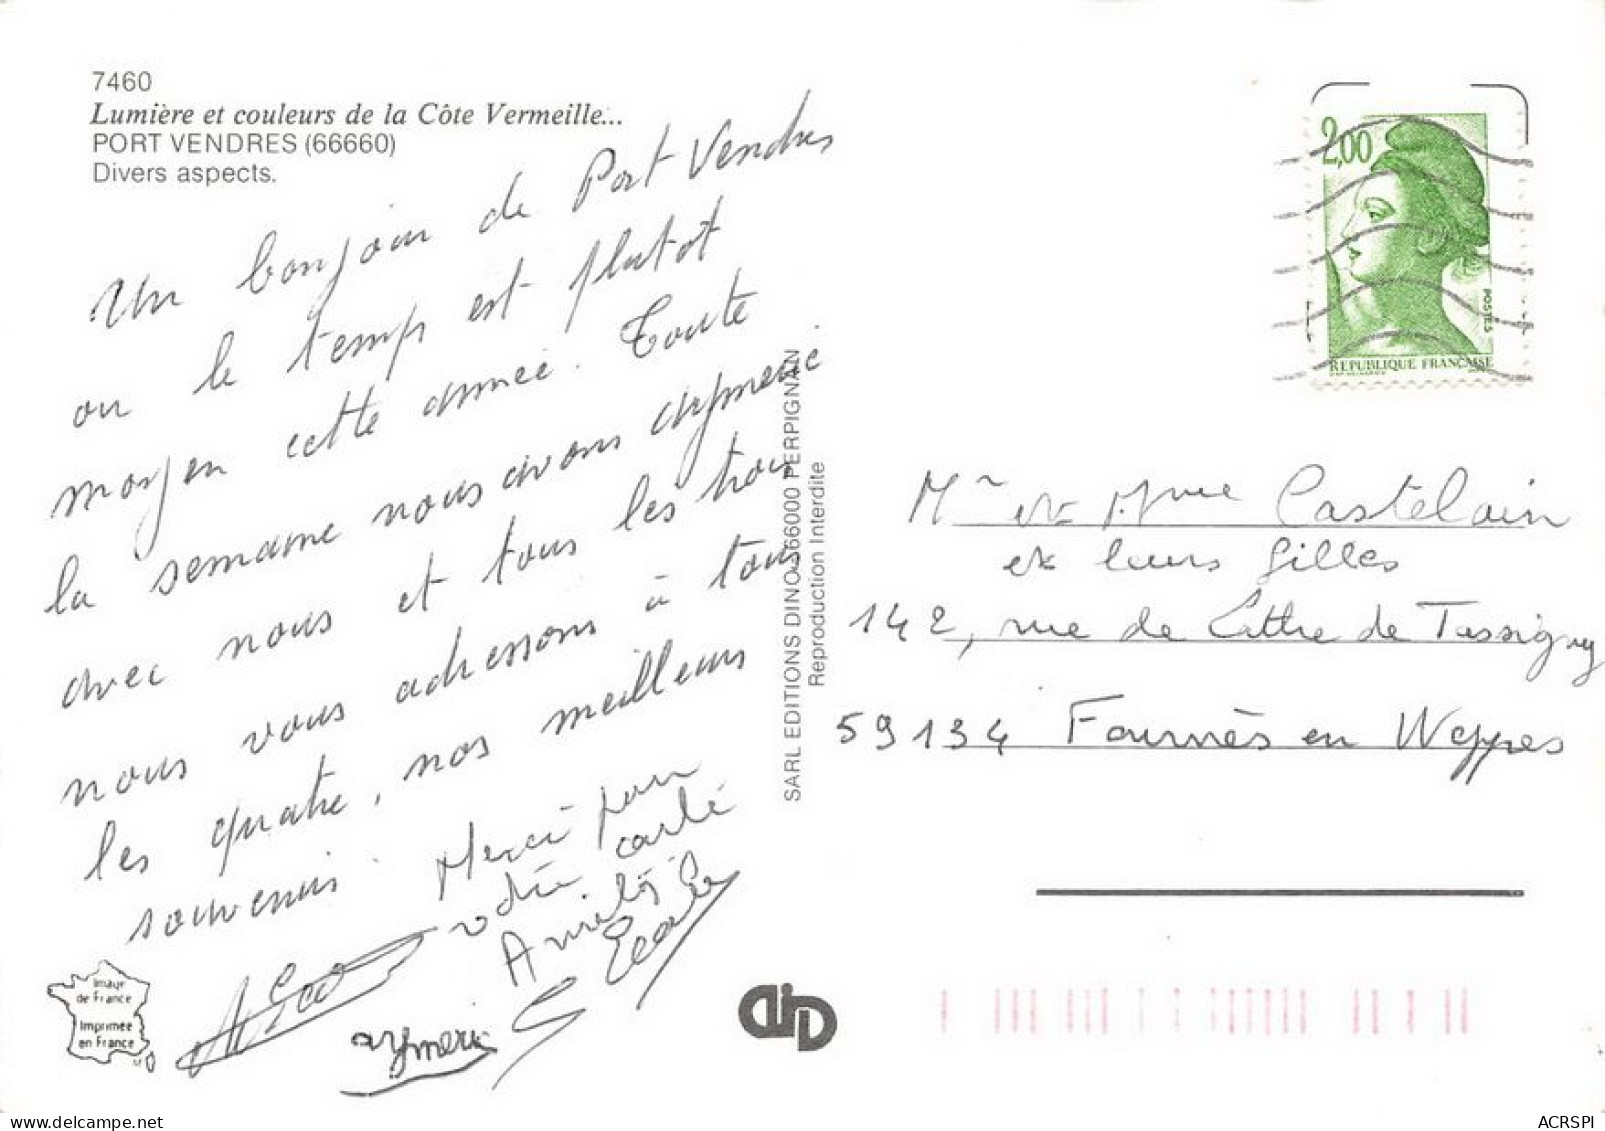 7460
Lumière et couleurs de la Côte Vermeille...
PORT VENDRES (66660)
Divers aspects.
Un bonjour de Port Vendres
ou le temps est plutot
moyen cette année. Toute
la semaine nous avons aymeric
avec nous et tous les trois
nous vous adressons à tous
les quatre, nos meilleurs
souvenirs.
Merci pour
votre carte
Amitiés
aymeric
Image
de France
Imprimée
en France
SARL EDITIONS DINO - 66000 PERPIGNAN
Reproduction Interdite
2,00
POSTES
REPUBLIQUE FRANÇAISE
Mr et Mme Castelain
et leurs filles
142, rue de Lattre de Tassigny
59134 Fournès en Weppes
delcampe.net
ACRSPI